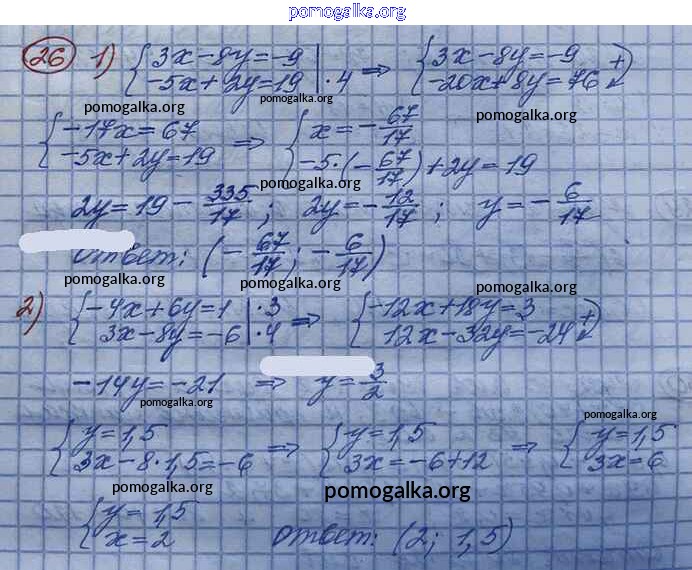 pomogalka.org
26 1) { 3x-8y=-9 ; -5x+2y=19 | ·4 ⇒ { 3x-8y=-9 ; -20x+8y=76 +
pomogalka.org pomogalka.org pomogalka.org
{ -17x=67 ; -5x+2y=19 ⇒ { x=-67/17 ; -5·(-67/17)+2y=19
pomogalka.org
2y=19-335/17; 2y=-12/17; y=-6/17
Ответ: (-67/17; -6/17)
pomogalka.org pomogalka.org pomogalka.org
2) { -4x+6y=1 | ·3 ; 3x-8y=-6 | ·4 ⇒ { -12x+18y=3 ; 12x-32y=-24 +
-14y=-21 ⇒ y=3/2
pomogalka.org pomogalka.org
{ y=1,5 ; 3x-8·1,5=-6 ⇒ { y=1,5 ; 3x=-6+12 ⇒ { y=1,5 ; 3x=6
pomogalka.org pomogalka.org
{ y=1,5 ; x=2 Ответ: (2; 1,5)